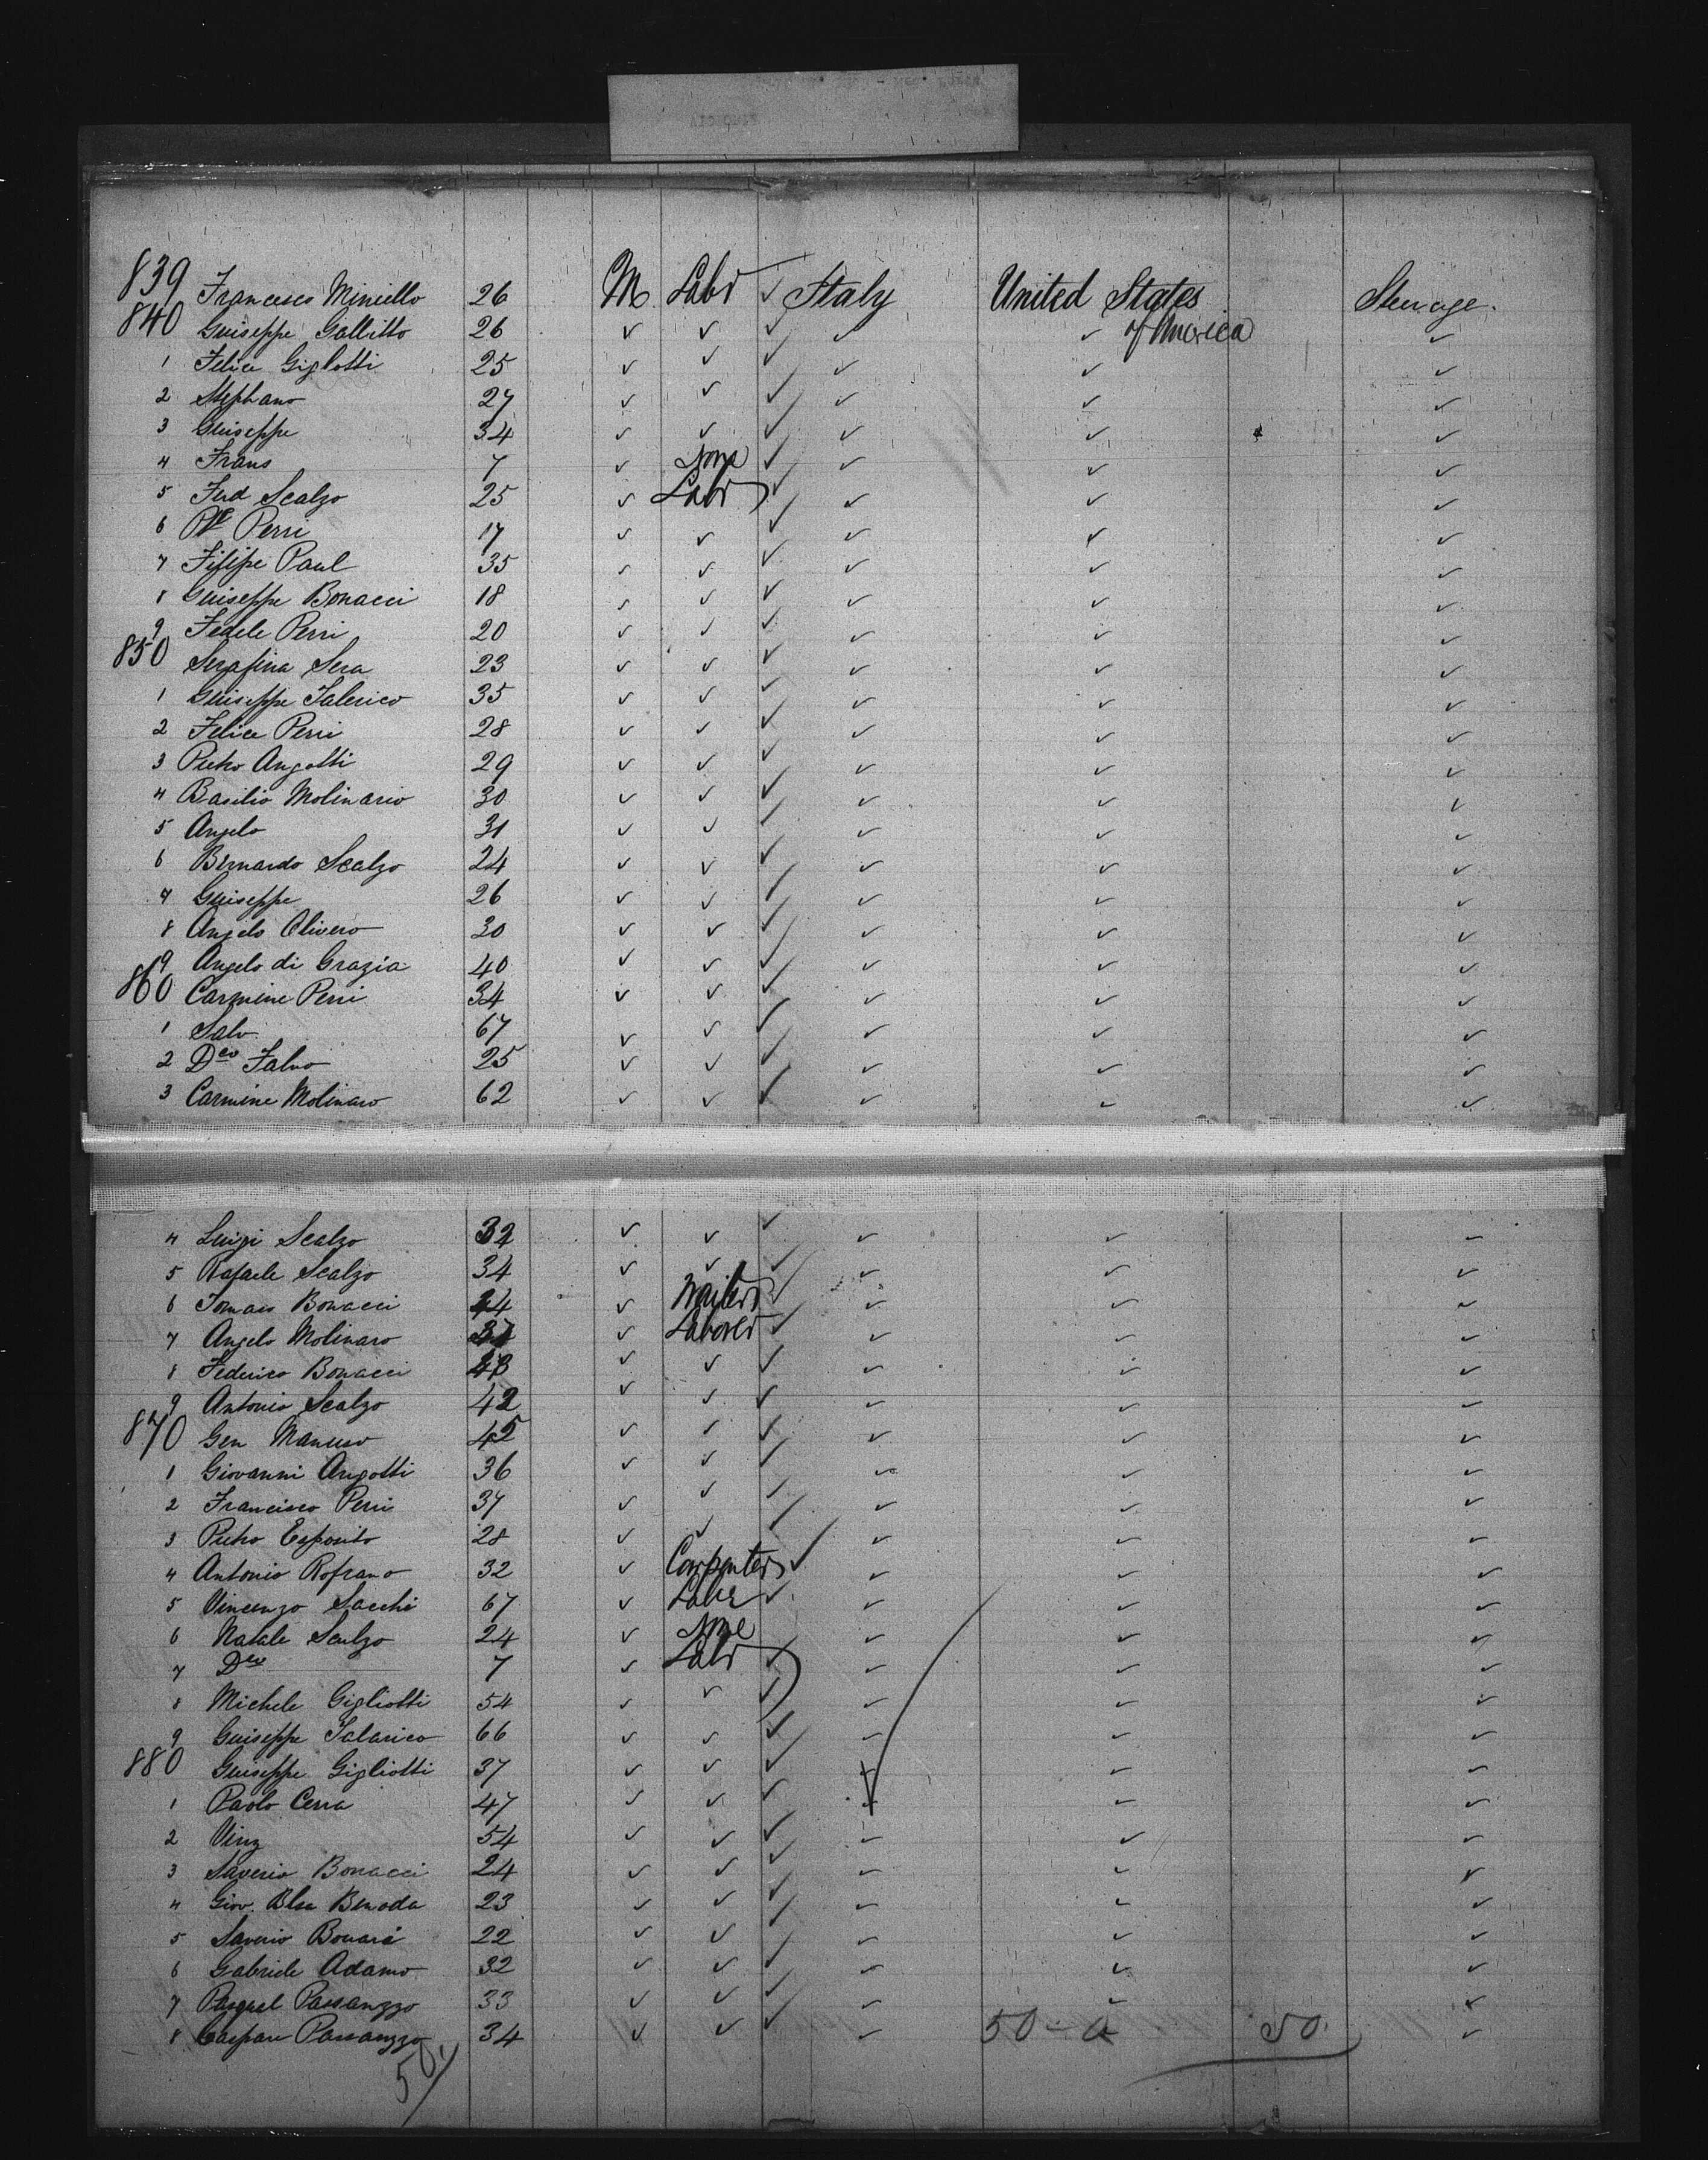 839 Francesco Miniello 26 M Labr ✓ Italy United States Steerage.
840 Guiseppe Gallitto 26 ✓ ✓ ✓ ✓ ✓ of America ✓
1 Felice Giglotti 25 ✓ ✓ ✓ ✓ ✓ ✓
2 Stephano 27 ✓ ✓ ✓ ✓ ✓ ✓
3 Guiseppe 34 ✓ ✓ ✓ ✓ ✓ ✓
4 Frans 7 ✓ None ✓ ✓ ✓ ✓
5 Ferd Scalzo 25 ✓ Labr ✓ ✓ ✓ ✓
6 Perri 17 ✓ ✓ ✓ ✓ ✓ ✓
7 Filipe Paul 35 ✓ ✓ ✓ ✓ ✓ ✓
8 Guiseppe Bonacci 18 ✓ ✓ ✓ ✓ ✓ ✓
9 Fedele Perri 20 ✓ ✓ ✓ ✓ ✓ ✓
850 Serafina Sera 23 ✓ ✓ ✓ ✓ ✓ ✓
1 Guiseppe Talerico 35 ✓ ✓ ✓ ✓ ✓ ✓
2 Felice Perri 28 ✓ ✓ ✓ ✓ ✓ ✓
3 Pietro Angotti 29 ✓ ✓ ✓ ✓ ✓ ✓
4 Basilio Molinario 30 ✓ ✓ ✓ ✓ ✓ ✓
5 Angelo 31 ✓ ✓ ✓ ✓ ✓ ✓
6 Bernardo Scalzo 24 ✓ ✓ ✓ ✓ ✓ ✓
7 Guiseppe 26 ✓ ✓ ✓ ✓ ✓ ✓
8 Angelo Olivero 30 ✓ ✓ ✓ ✓ ✓ ✓
9 Angelo di Grazia 40 ✓ ✓ ✓ ✓ ✓ ✓
860 Carmine Perri 34 ✓ ✓ ✓ ✓ ✓ ✓
1 Salv. 67 ✓ ✓ ✓ ✓ ✓ ✓
2 Dco Falvo 25 ✓ ✓ ✓ ✓ ✓ ✓
3 Carmine Molinaro 62 ✓ ✓ ✓ ✓ ✓ ✓
4 Luigi Scalzo 32 ✓ ✓ ✓ ✓ ✓ ✓
5 Rafaele Scalzo 34 ✓ ✓ ✓ ✓ ✓ ✓
6 Tomaso Bonacci 44 ✓ Waiter ✓ ✓ ✓ ✓
7 Angelo Molinaro ✓ Laborer ✓ ✓ ✓ ✓
8 Federico Bonacci ✓ ✓ ✓ ✓ ✓ ✓
9 Antonio Scalzo 42 ✓ ✓ ✓ ✓ ✓ ✓
870 Gen Mancuso 45 ✓ ✓ ✓ ✓ ✓ ✓
1 Giovanni Angotti 36 ✓ ✓ ✓ ✓ ✓ ✓
2 Francisco Perri 37 ✓ ✓ ✓ ✓ ✓ ✓
3 Pietro Esposito 28 ✓ ✓ ✓ ✓ ✓ ✓
4 Antonio Rofrano 32 ✓ Carpenter ✓ ✓ ✓ ✓
5 Vincenzo Sacchi 67 ✓ Labr ✓ ✓ ✓ ✓
6 Natale Scalzo 24 ✓ None ✓ ✓ ✓
7 Dco 7 ✓ Labr ✓ ✓ ✓ ✓
8 Michele Gigliotti 54 ✓ ✓ ✓ ✓ ✓ ✓
9 Guiseppe Talarico 66 ✓ ✓ ✓ ✓ ✓ ✓
880 Guiseppe Gigliotti 37 ✓ ✓ ✓ ✓ ✓ ✓
1 Paolo Cerra 47 ✓ ✓ ✓ ✓ ✓ ✓
2 Vinz 54 ✓ ✓ ✓ ✓ ✓ ✓
3 Saverio Bonacci 24 ✓ ✓ ✓ ✓ ✓ ✓
4 Giov. Bsa Benoda 23 ✓ ✓ ✓ ✓ ✓ ✓
5 Saverio Bonaci 22 ✓ ✓ ✓ ✓ ✓ ✓
6 Gabriele Adamo 32 ✓ ✓ ✓ ✓ ✓ ✓
7 Pasqual Passanzzo 33 ✓ ✓ ✓ ✓ ✓ ✓
8 Caspare Passanzzo 34 ✓ ✓ ✓ ✓ 50 - a 50. ✓
50/